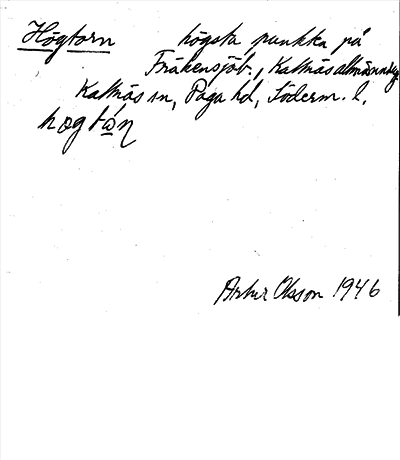 Högtorn högsta punkka på
Fräkensjöb., Kattnäs allmänning
Kattnäs sn, Daga hd, Söderm. l.
hǫgtån
Artur Olsson 1946